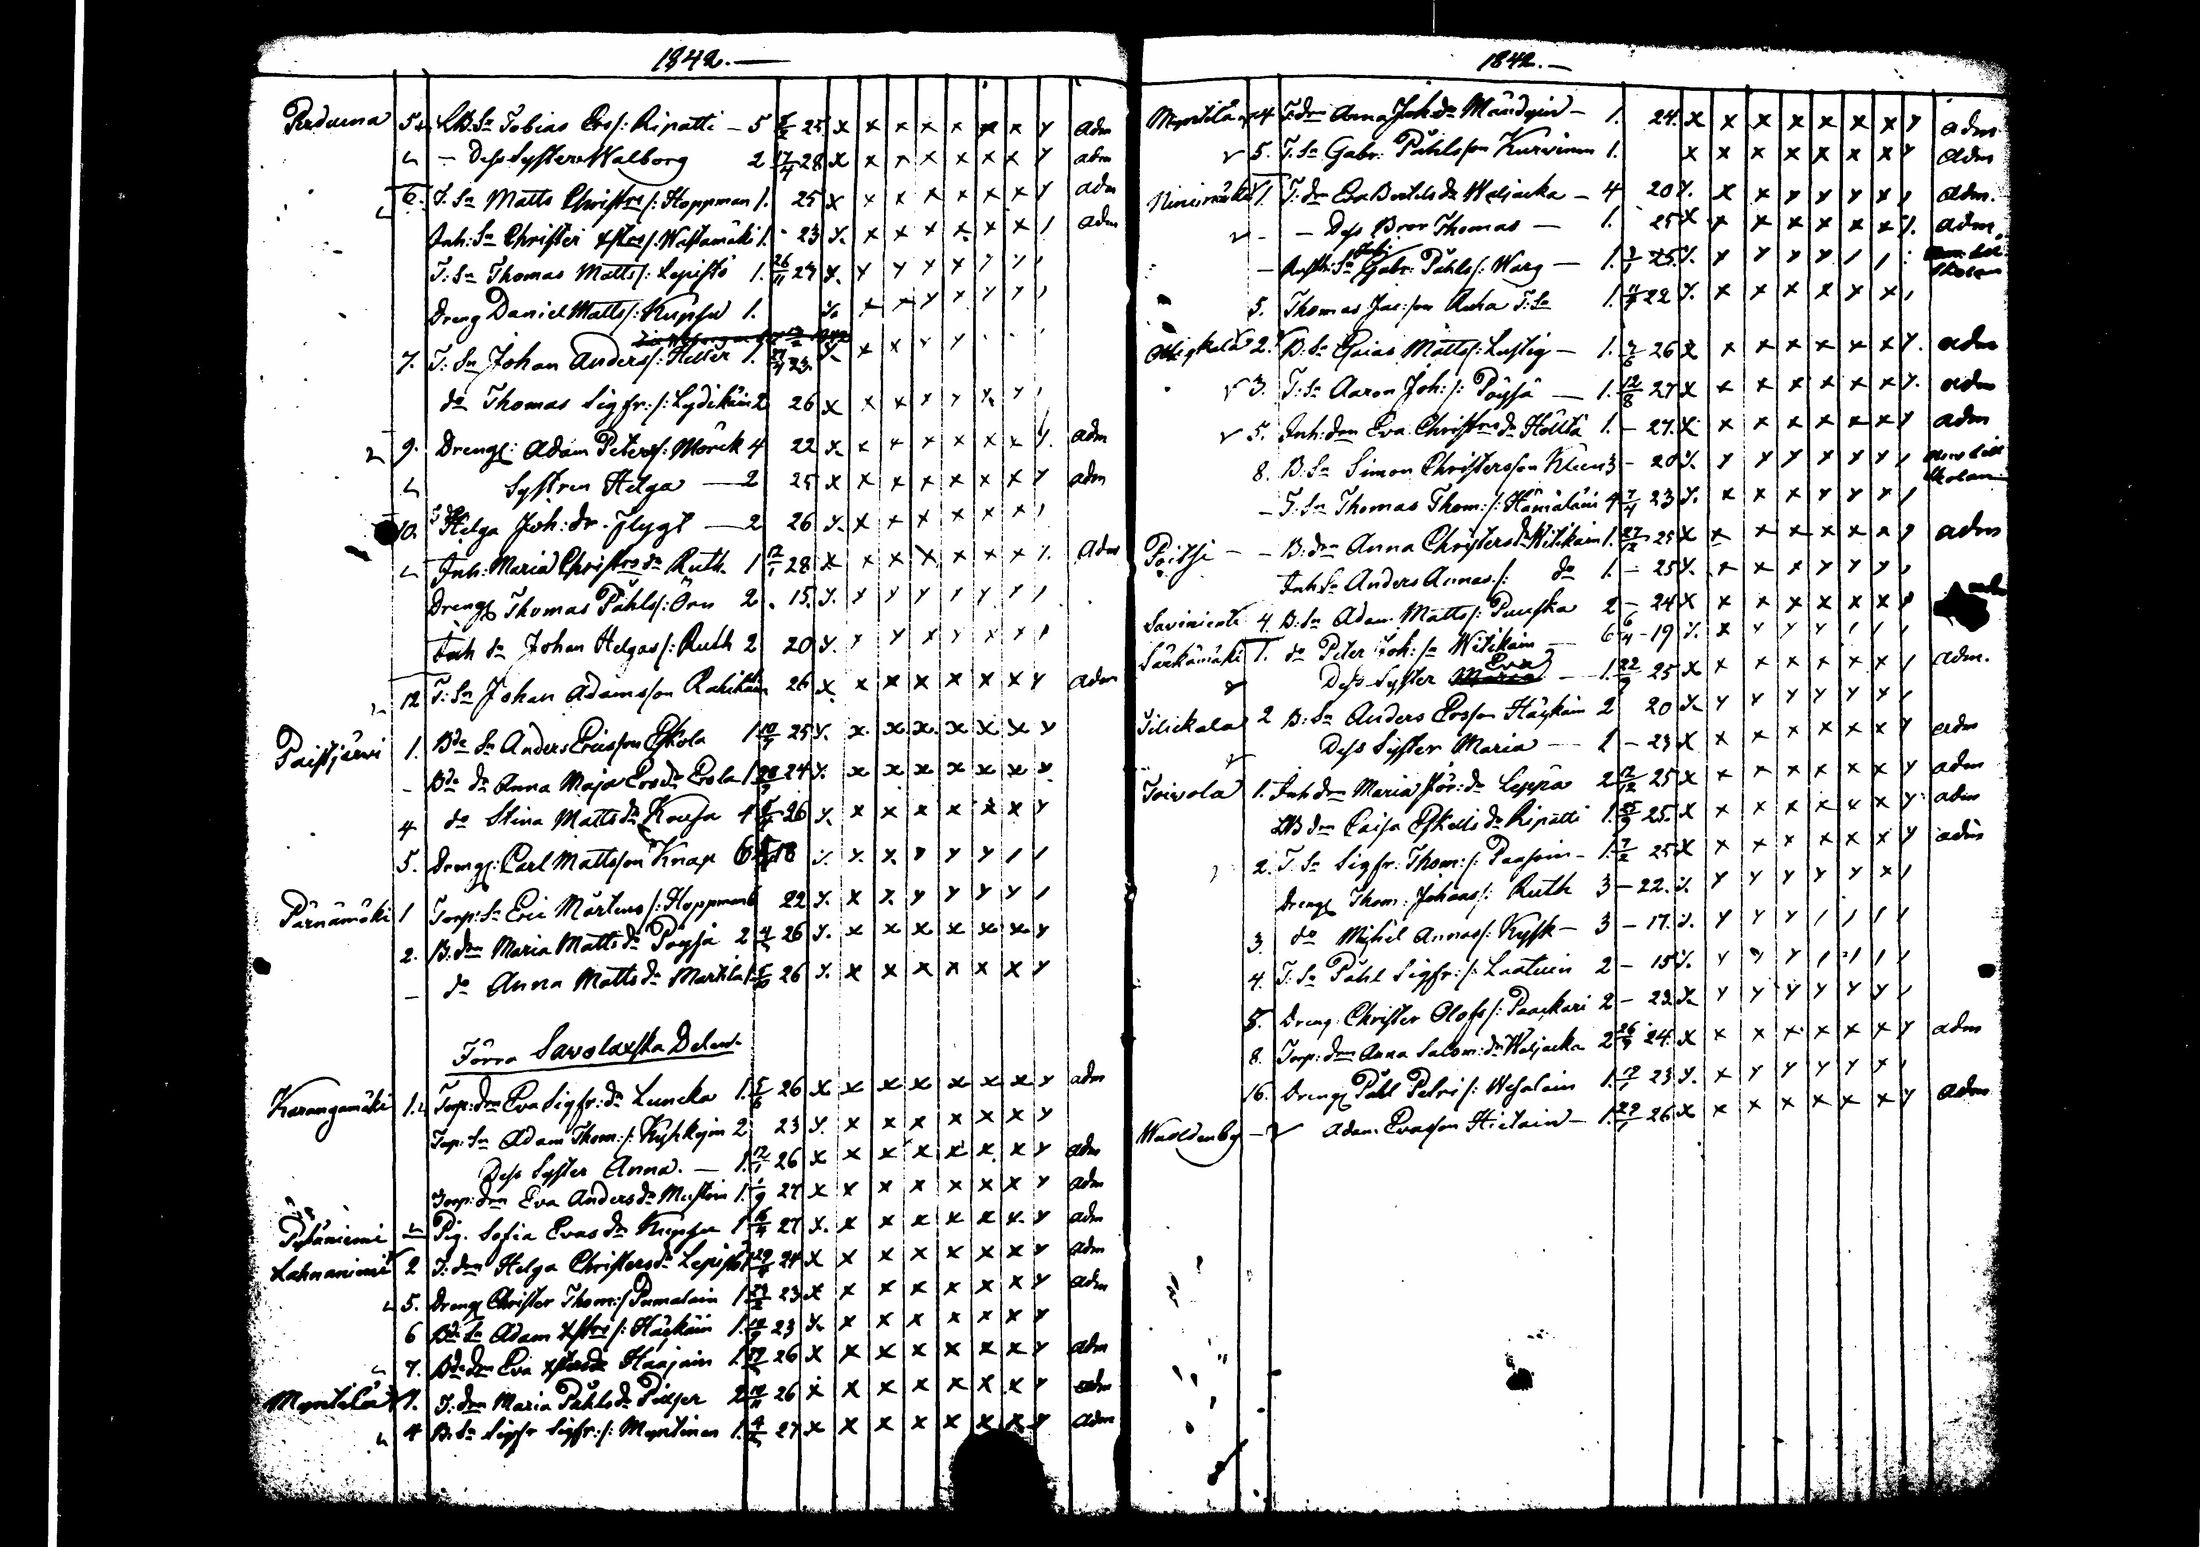 1842.—
Perduma 5. LB: Sn Tobias Ers/: Ripatti — 5 25 x x x x x x x y adm
— Dess Syster Walborg 2 17/4 28 x x x x x x x y adm
6. T: Sn Matts Christrs/: Hoppman 1. 25 x x x x x x x y adm
Inh: Sn Christer Xstrs/: Wastamäki 1. - 23 y. x x x x x x / adm
T: Sn Thomas Matts/: Lepistö 1. 26/11 27 y. y y y x y y /
Dreng Daniel Matts/: Kupsu 1. y. x x y x y y /
7. T: Sn Johan Anders/: Helter 1. 23 y. x x y y
do Thomas Sigfr:/: Lydikäin 2 26 x x x y y y y /
9. Dreng: Adam Peters/: Morck 4 22 x x x x x x x y. adm
Systren Helga — 2 25 x x x x x x x y adm
10. Helga Joh: dr. Flygt — 2 26 y. x x x x x x /
Inh: Maria Christrs dr Ruth 1 12/1 28 x x x x x x x y. adm
Dreng Thomas Påhls/: Örn 2 . 15. y. y y y y y / /
Inh Sn Johan Helgas/: Ruth 2 20 y. y y x y x x /
12 T: Sn Johan Adamsson Rahikain 26 x x x x x x x y adm
Paistjärvi 1. Bde Sn Anders Ericsson Eskola 1 25 y. x x x x x x y
- Bde dr Anna Maja Ersdr Erola 1 24 y. x x x x x x y
4 do Stina Matts dr Kousa 4 26 y. x x x x x x y
5. Dreng: Carl Mattsson Knap 6 18 y. y. x. y y y / /
Pärnämäki 1 Torp: Sn Eric Mårtens/: Hoppman 6 22 y. x x. y y y y /
2. B. dm Maria Matts dr Pöysä 2 4/5 26 y. x x x x x x y
— do Anna Matts dr Martila 1 26 y. x x x x x x y
Förra Savolaxska Delen.
Karangamäki 1. Torp: dm Eva Sigfr: dr Luncka 1. 5/6 26 x x x x x x x y adm
Torp: Sn Adam Thom:/: Kyhkyin 2 23 y. x x x x x x y
Dess Syster Anna. — 1. 12/1 26 x x x x x x x y adm
Torp: dm Eva Anders dr Mustoin 1. 1/9 27 x x x x x x x y adm
Pytäniemi Pig. Sofia Evas dr Kupsu 1 27 x. x x x x x x. y adm
Lahnaniemi 2 T: dm Helga Christersdr Lepistö 1 29 24 x x x x x x x y adm
5. Dreng Christer Thom:/: Pumalain 1 23 x x x x x x x y adm
6 Bde Sn Adam Xstrs/: Häykäin 1. 23 y. x x x x x x y
7. Bde dm Eva Xstersdr Haajain 1. 26 x x x x x x x y adm
Myntilä 1. T: dm Maria Påhls dr Pitser 2 26 x x x x x x x y adm
4 B: Sn Sigfr Sigfr:/: Myntinen 1. 27 x x x x x x x y adm
1842.—
Myntilä 4 T: dm Anna Joh: dr Mändyin — 1. 24. x x x x x x x y adm
5. T: Sn Gabr: Påhlsson Kurvinen 1. x x x x x x x y adm
Niinimäki 1. T: dm Eva Bertils dr Waljacka — 4 20 y. x x y y y y / adm.
— Dess Bror Thomas — 1. 25 x x x x x x x y. adm.
— Gabr: Påhls/: Warg — 1. 25 y. y y y y / /
5. Thomas Jac:son Auha T: Sn 1. 22 y. x x x x x x /
Ollickala 2. B: Sn Esaias Matts/: Lustig — 1. 26 x x x x x x x y. adm
3. T: Sn Aaron Joh:/: Pöysä — 1. 12/8 27 x x x x x x x y. adm
5. Inh: dm Eva Christrs dr Höltta 1. — 27. x x x x x x x y adm
8. B: Sn Simon Christersson Klein 3 — 20 y. y y y y y y /
— T: Sn Thomas Thom:/: Hämäläin 4 7/4 23 y. x x x y y y /
Pöitsi — — B: dm Anna Christersdr Witikain 1. 27/12 25 x x x x x x x y adm
Inh Sn Anders Annas/: do 1. — 25 y. x x x y y y /
Saviniemi 4. B: Sn Adam Matts/: Puuska 2 — 24 x x x x x x x y
Särkämäki 1. do Peter Joh: Sn Witikain — 6 6/4 — 19 y. x y y y / / /
Dess Syster Eva — 1. 22/9 25 x x x x x x x / adm.
Tilickala 2 B: Sn Anders Ersson Häykäin 2 20 y. y y y y y y /
Dess Syster Maria — 1 — 23 x x x x x x x y adm
Toivola 1. Inh dm Maria Jör: dr Leppä 2 12/12 25 x x x x x x x y adm
LB dm Caisa Eskells dr Ripatti 1. 25/9 25. x x x x x x x y adm
2. T: Sn Sigfr: Thom:/: Paasoin — 1. 7/2 25 x x x x x x x y adm
Dreng Thom: Johans/: Ruth 3 — 22. y. y y y y y x /
3. do Michel Annas/: Kyssk — 3 — 17. y. y y y / / / /
4. T: Sn Påhl Sigfr:/: Laatuin 2 — 15 y. y y y / / / /
5. Dreng Christer Olofs/: Paackari 2 — 23. y. y y y y y y /
8. Torp: dm Anna Salom: dr Waljacka 2 26/9 24. x x x x x x x y adm
16. Dreng Påhl Petri/: Wesalain 1. 23 y. x y y y y y /
Waldenby — Adam Evasson Hietain — 1. 26 x x x x x x x y adm